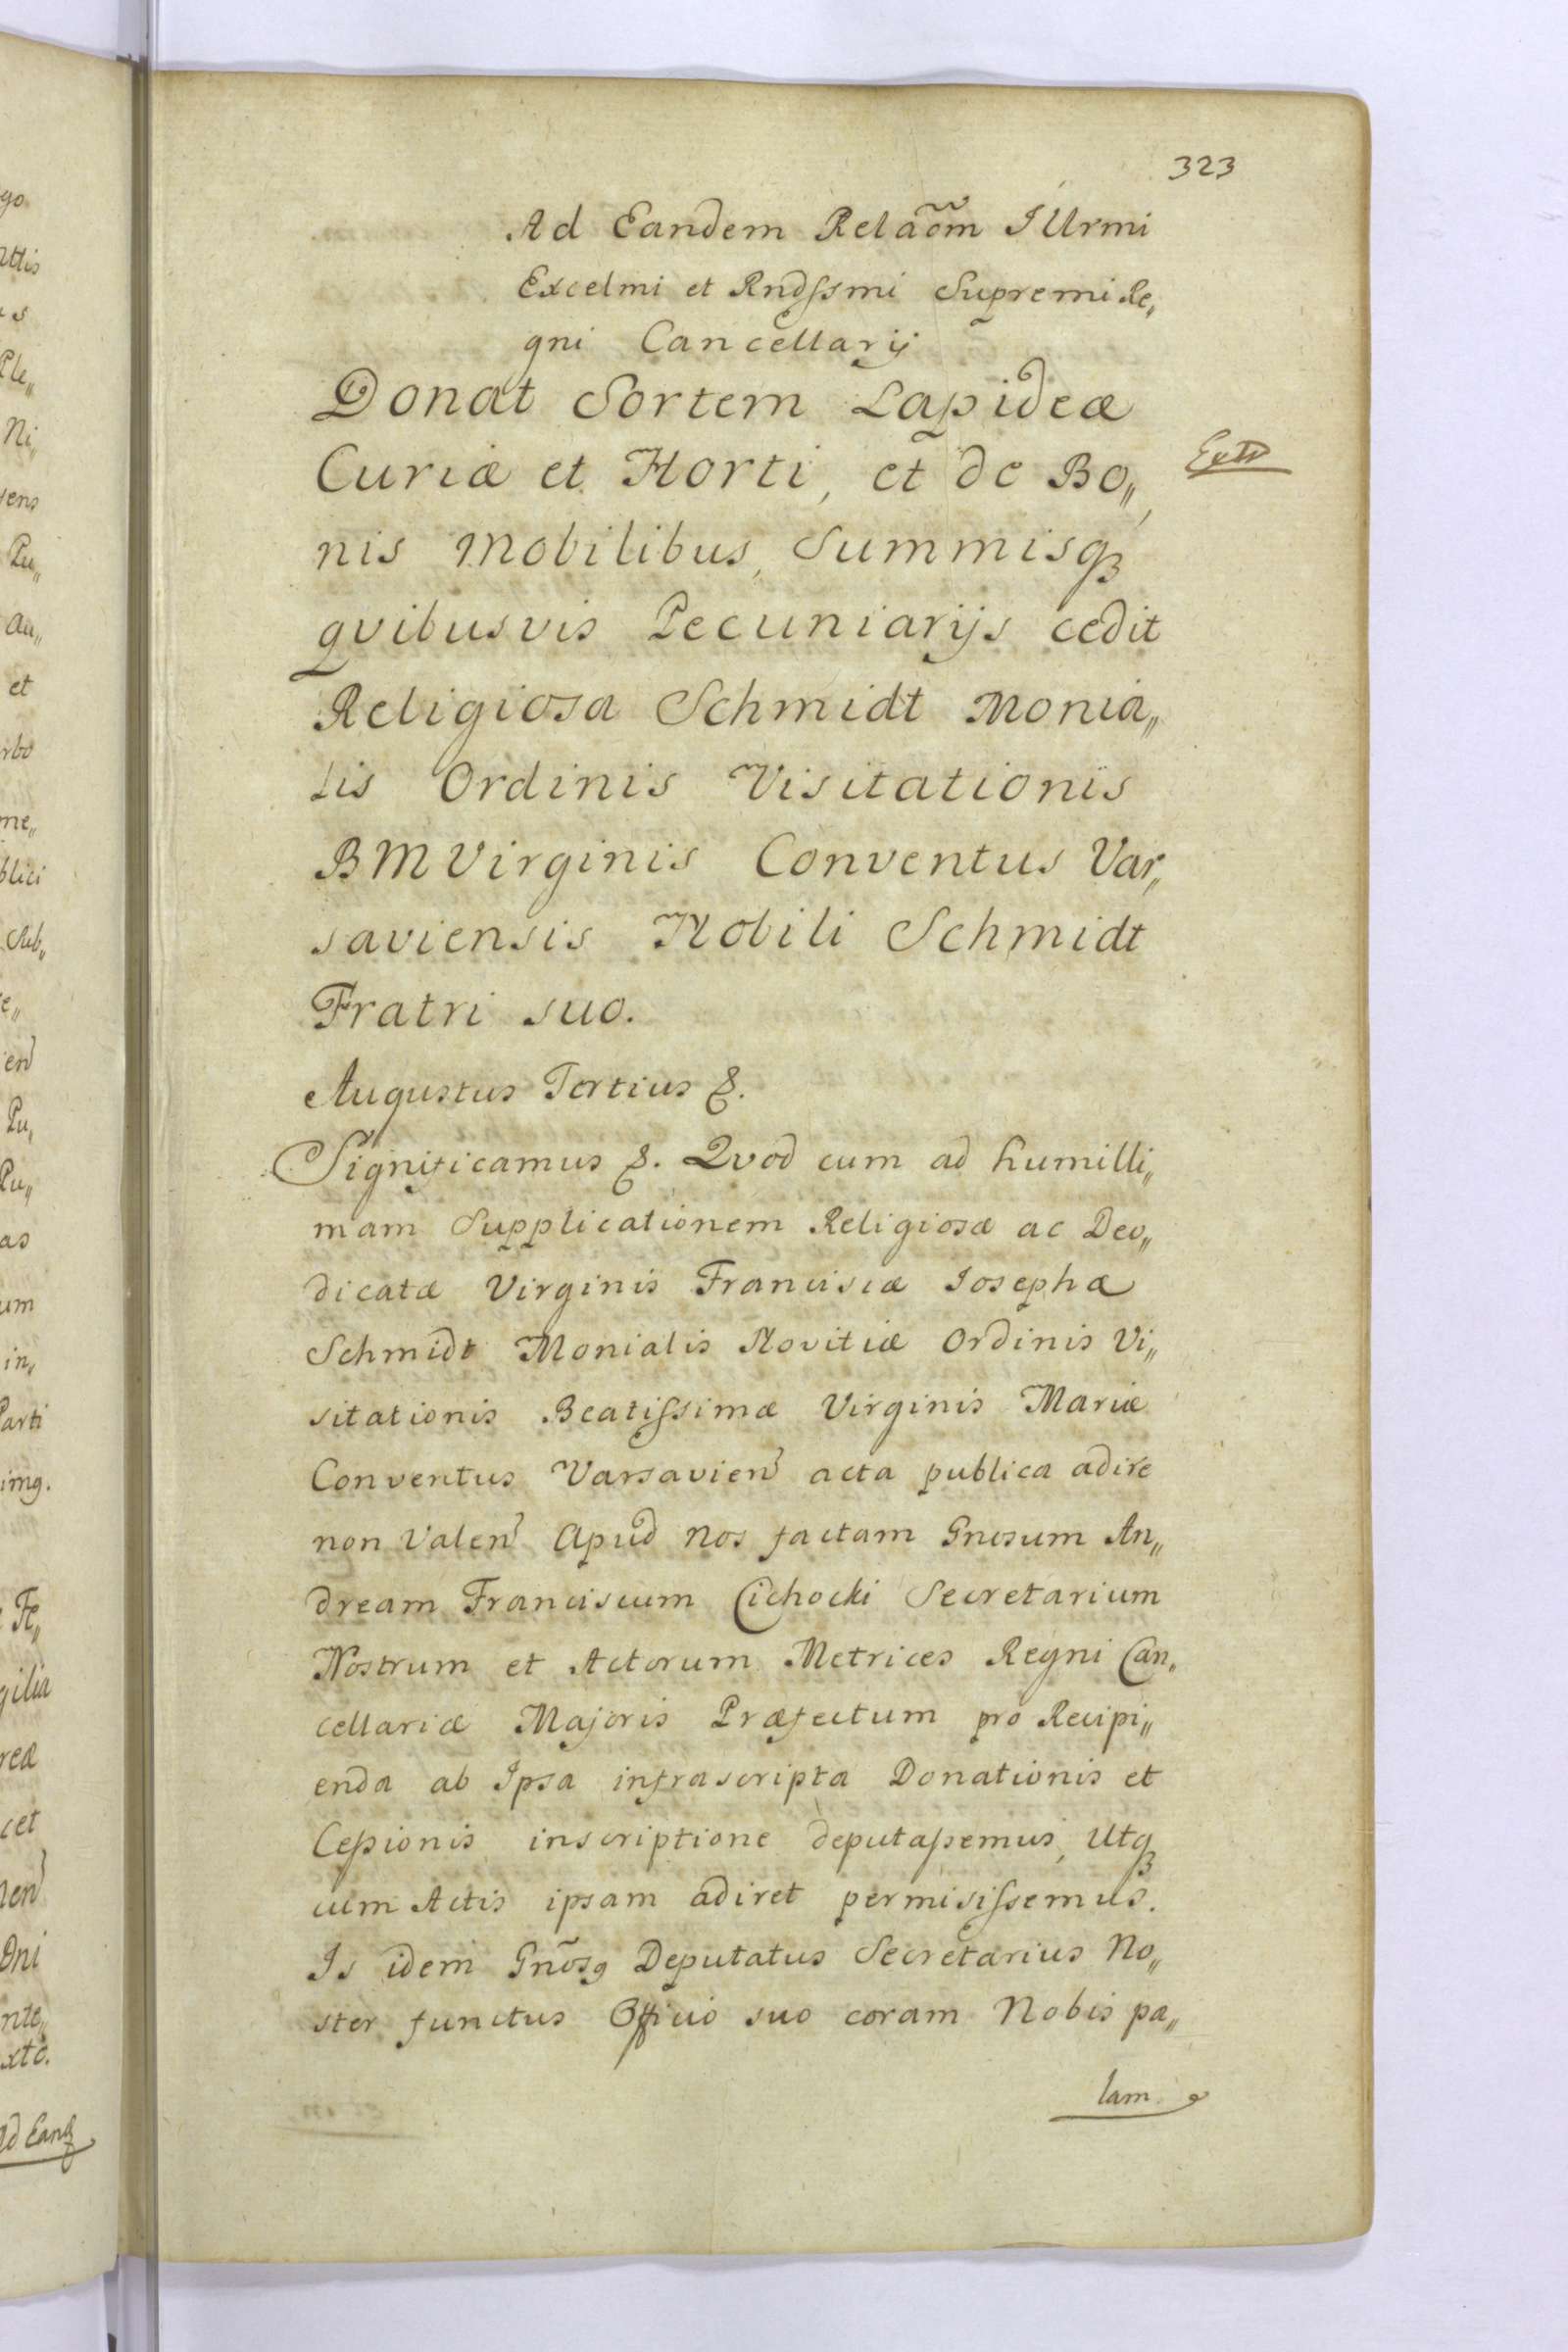 323
Ad Eandem Relaõm Illrmi
Excelmi et Rndssmi Supremi Re„
gni Cancellarij
Donat Sortem Lapideæ
Curiæ et Horti, et de Bo„
nis Mobilibus, Summisq₃
qvibusvis Pecuniarijs cedit
Religiosa Schmidt Monia„
lis Ordinis Visitationis
BMVirginis Conventus Var„
saviensis Nobili Schmidt
Fratri suo.
Augustus Tertius &.
Significamus &. Qvod cum ad humilli„
mam Supplicationem Religiosæ ac Deo„
dicatæ Virginis Franciscæ Josephæ
Schmidt Monialis Novitiæ Ordinis Vi„
sitationis Beatissimæ Virginis Mariæ
Conventus Varsavien acta publica adire
non Valen Apud Nos factam Gnosum An„
dream Franciscum Cichocki Secretarium
Nostrum et Actorum Metrices Regni Can„
cellariæ Majoris Præfectum pro Recipi„
enda ab Ipsa infrascripta Donationis et
Cessionis inscriptione deputassemus, Utq₃
cum Actis ipsam adiret permisissemus.
Is idem Gnõsq Deputatus Secretarius No„
ster functus Officio suo coram Nobis pa„
lam